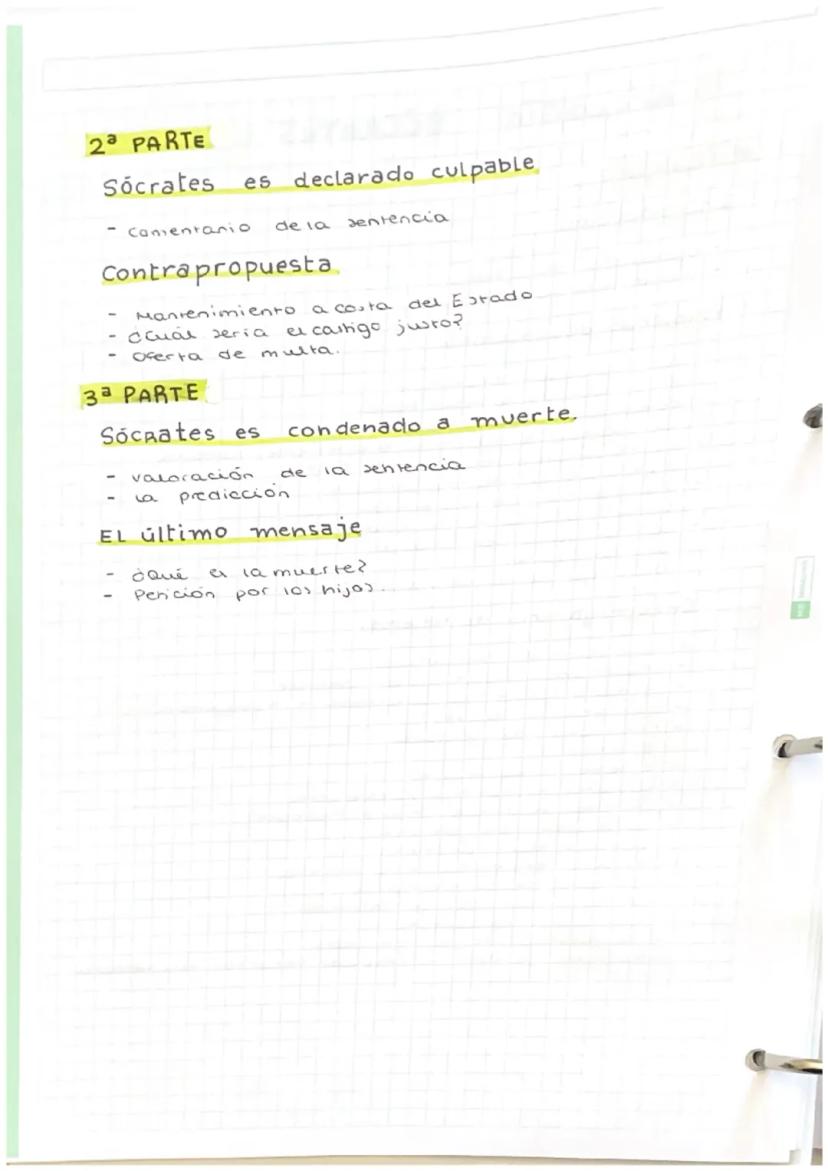 2ª PARTE
Sócrates es declarado culpable
- Comentario de la sentencia
Contrapropuesta
- Mantenimiento a costa del Estado
- ¿Cuál sería el castigo justo?
- Oferta de multa.
3ª PARTE
Sócrates es condenado a muerte.
- valoración de la sentencia
- La predicción
El último mensaje
- ¿Qué es la muerte?
- Petición por los hijos.